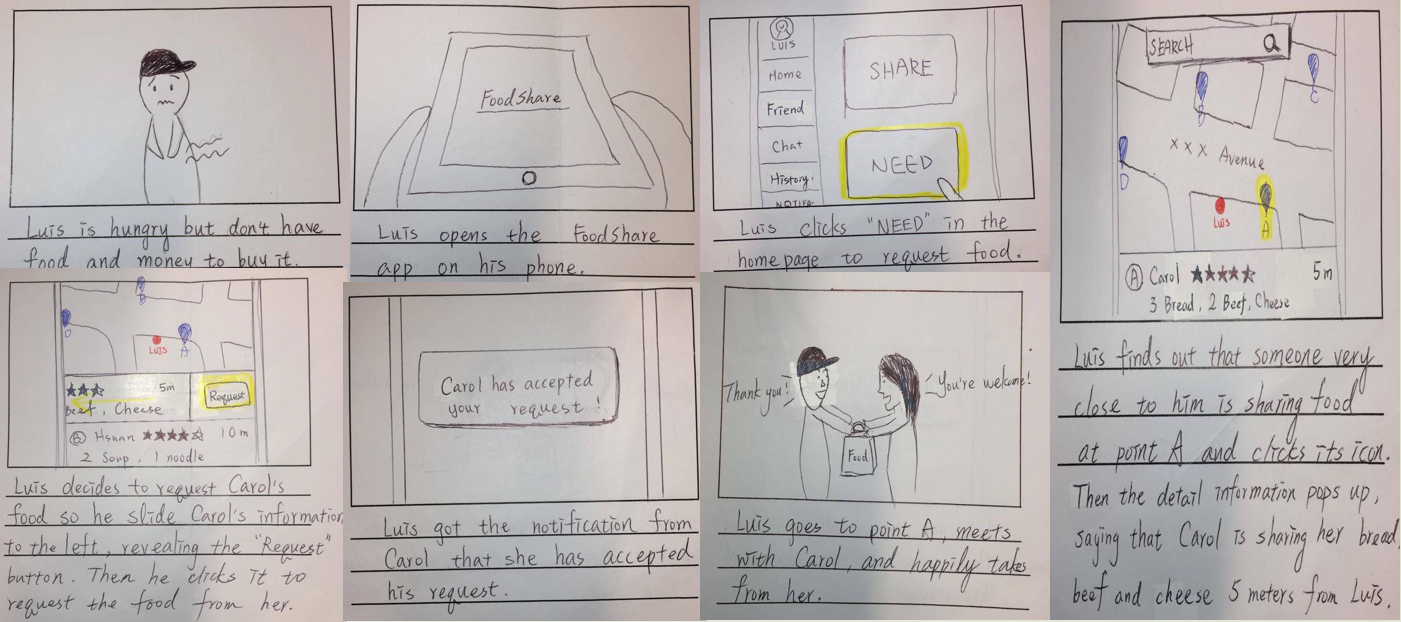 Luis is hungry but don't have
food and money to buy it.
FoodShare
Luis opens the FoodShare
app on his phone.
LUIS
Home
Friend
Chat
History.
NOTIFA
SHARE
NEED
Luis clicks "NEED" in the
homepage to request food.
SEARCH
B
C
D
xxx Avenue
Luis
A
A Carol 5m
3 Bread, 2 Beef, Cheese
Luis finds out that someone very
close to him is sharing food
at point A and clicks its icon.
Then the detail information pops up,
saying that Carol is sharing her bread,
beef and cheese 5 meters from Luis.
B
D
LUIS
A
5m
Beef, Cheese
Request
B Hsuan 10m
2 Soup, 1 noodle
Luis decides to request Carol's
food so he slide Carol's information
to the left, revealing the "Request"
button. Then he clicks it to
request the food from her.
Carol has accepted
your request!
Luis got the notification from
Carol that she has accepted
his request.
Thank you!
You're welcome!
Food
Luis goes to point A, meets
with Carol, and happily takes
from her.